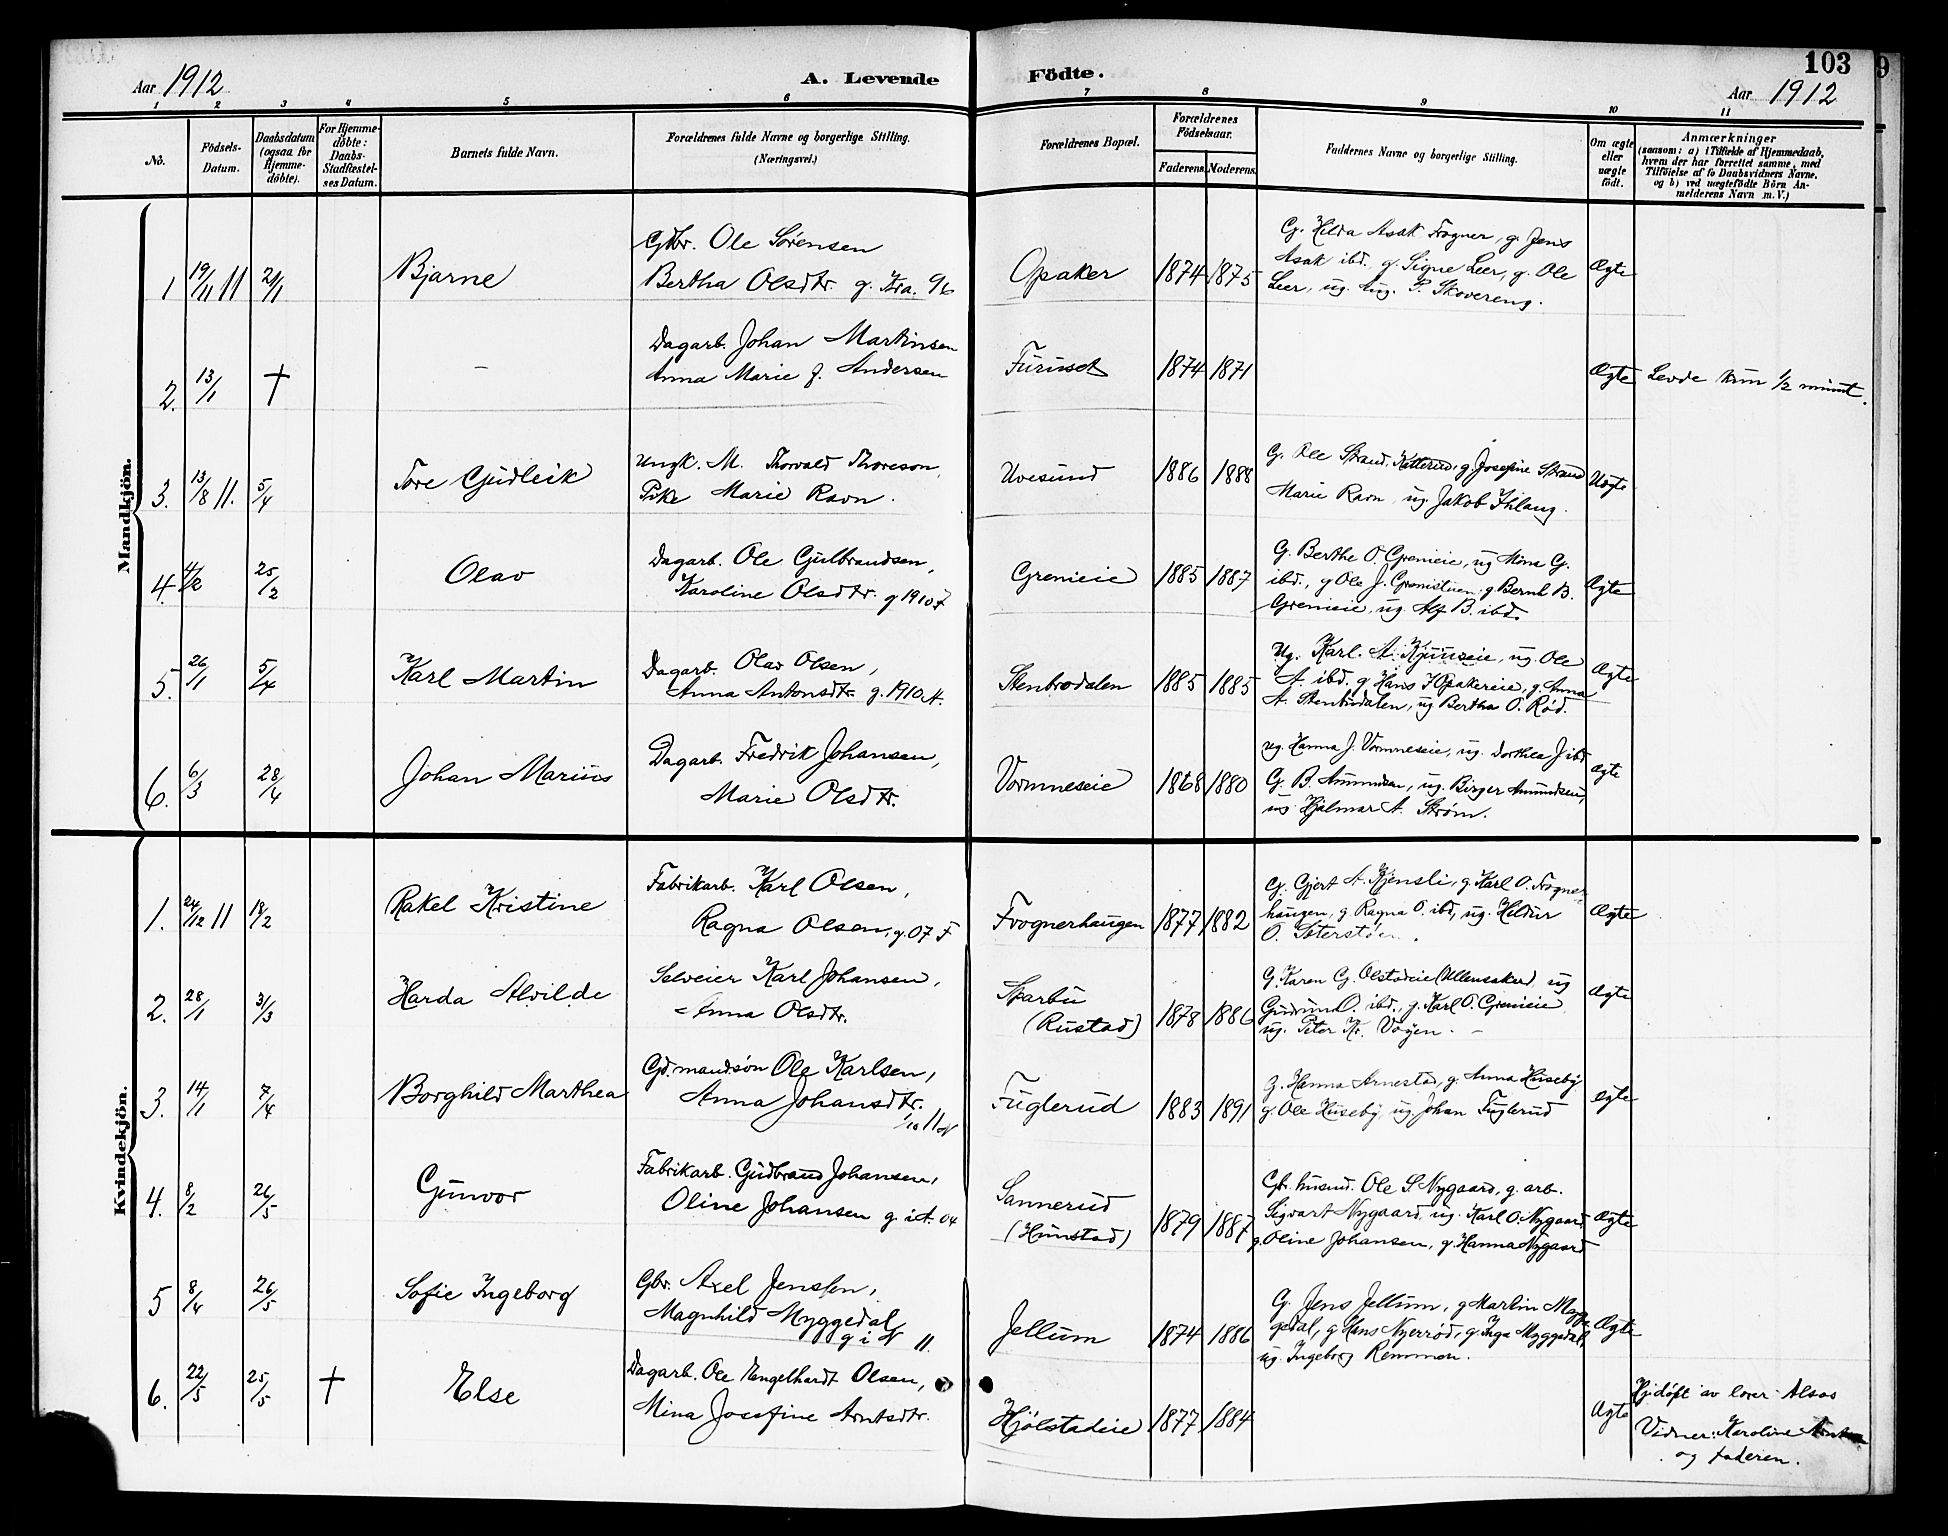 Aar 1912
A. Levende
Födte.
103
Aar 1912
1 2 3 4 5 6 7 8 9 10 11
No.
Födsels-
Datum.
Daabsdatum
(ogsaa for
Hjemme-
döbte).
For Hjemme-
döbte:
Daabs-
Stadfæstel-
ses Datum.
Barnets fulde Navn.
Forældrenes fulde Navne og borgerlige Stilling.
(Næringsvei.)
Forældrenes Bopæl.
Forældrenes
Födselsaar.
Faderens. Moderens.
Faddernes Navne og borgerlige Stilling.
Om ægte
eller
uægte
födt.
Anmærkninger
(saasom: a) i Tilfælde af Hjemmedaab,
hvem der har forrettet samme, med
Tilföielse af to Daabsvidners Navne,
og b) ved uægtefödte Börn An-
melderens Navn m.V.)
Mandkjön.
1 19/11 11 21/1 Bjarne
Gbr. Ole Sörensen
Bertha Olsdtr. g. Kra. 96
Opaker 1874 1875
G. Hilda Asak Frogner, g. Jens
Asak ibd. g. Signe Leer, g. Ole
Leer, ug. Aug. P. Skovereng.
Ægte
2. 13/1 † –
Dagarb. Johan Martinsen
Anna Marie f. Andersen
Furuset 1874 1871
Ægte Levde kun 1/2 minut.
3. 13/8 11. 5/4 Tore Gudleik
Ungk. M. Thorvald Thoreson,
Pike Marie Ravn.
Uvesund 1886 1888
G. Ole Strand, Katterud, g. Josefine Strand
Marie Ravn, ug. Jakob Ihlang.
Uægte
4. 4/2 25/2 Olav
Dagarb. Ole Gulbrandsen,
Karoline Olsdtr. g 1910 F
Grenieie 1885 1887
G. Berthe O. Grenieie, ug Mina G.
ibd., g Ole J. Grenistuen g Bernh B.
Grenieie, ug. Alf B. ibd.
Ægte
5. 26/1 5/4 Karl Martin
Dagarb. Olav Olsen,
Anna Antonsdtr. g. 1910 A.
Stenbrodalen 1885 1885
Ug. Karl. A. ug. Ole
A. ibd. g Hans Opakereie, g. Anna
A. Stenbrodalen, ug Bertha O. Rød.
Ægte
6. 6/3 28/4 Johan Marius
Dagarb. Fredrik Johansen,
Marie Olsdtr.
Vormneseie 1868 1880
ug. Hanna J. Vormneseie, ug. Dorthea J ibd
G. B. Amundsen, ug. Birger Amundsen,
ug. Hjalmar A. Strøm.
Ægte
Kvindekjön.
1. 24/12 11 18/2 Rakel Kristine
Fabrikarb. Karl Olsen,
Ragna Olsen, g. 07 F
Frognerhaugen 1877 1882
G. Gjert A. Kjensli, g Karl O. Frogner-
haugen, g Ragna O. ibd, ug. Hildur
O.
Ægte
2. 28/1 3/3 Harda Alvilde
Selveier Karl Johansen,
Anna Olsdtr.
Skarbu
(Rustad) 1878 1886
G. Karen G. Olstadeie (Ullensaker) ug
Gudrun O. ibd., g. Karl O. Grenieie
ug. Peter Kr. Vøyen. –
Ægte
3. 14/1 7/4 Borghild Marthea
Gd.mandsön Ole Karlsen,
Anna Johansdtr.
/10 11 N
Fuglerud 1883 1891
g. Hanna Arnestad, g. Anna Huseby
g Ole Huseby, ug Johan Fuglerud
Ægte
4. 8/2 26/5 Gunvor
Fabrikarb. Gudbrand Johansen,
Oline Johansen g. i A. 04
Sannerud
(Hunstad) 1879 1887
Gbr. husmd. Ole S. Nygaard, g. arb.
Sigvart Nygaard, ug. Karl O. Nygaard
g. Oline Johansen, g. Hanna Nygaard
Ægte
5 8/4 26/5 Sofie Ingeborg
Gbr. Axel Jensen,
Magnhild Myggedal
g i N 11.
Jellum 1874 1886
G. Jens Jellum, g Martin Myg-
gedal, g Hans Nyerrød, g. Inga Myggedal,
ug. Ingeborg Remmen.
Ægte
6. 22/5 25/5 † Else
Dagarb. Ole Engelhardt Olsen,
Mina Josefine Arntsdtr.
Hjölstadeie 1877 1884
Ægte
Hj.døpt av lærer Alsos
Vidner: Karoline
og faderen.